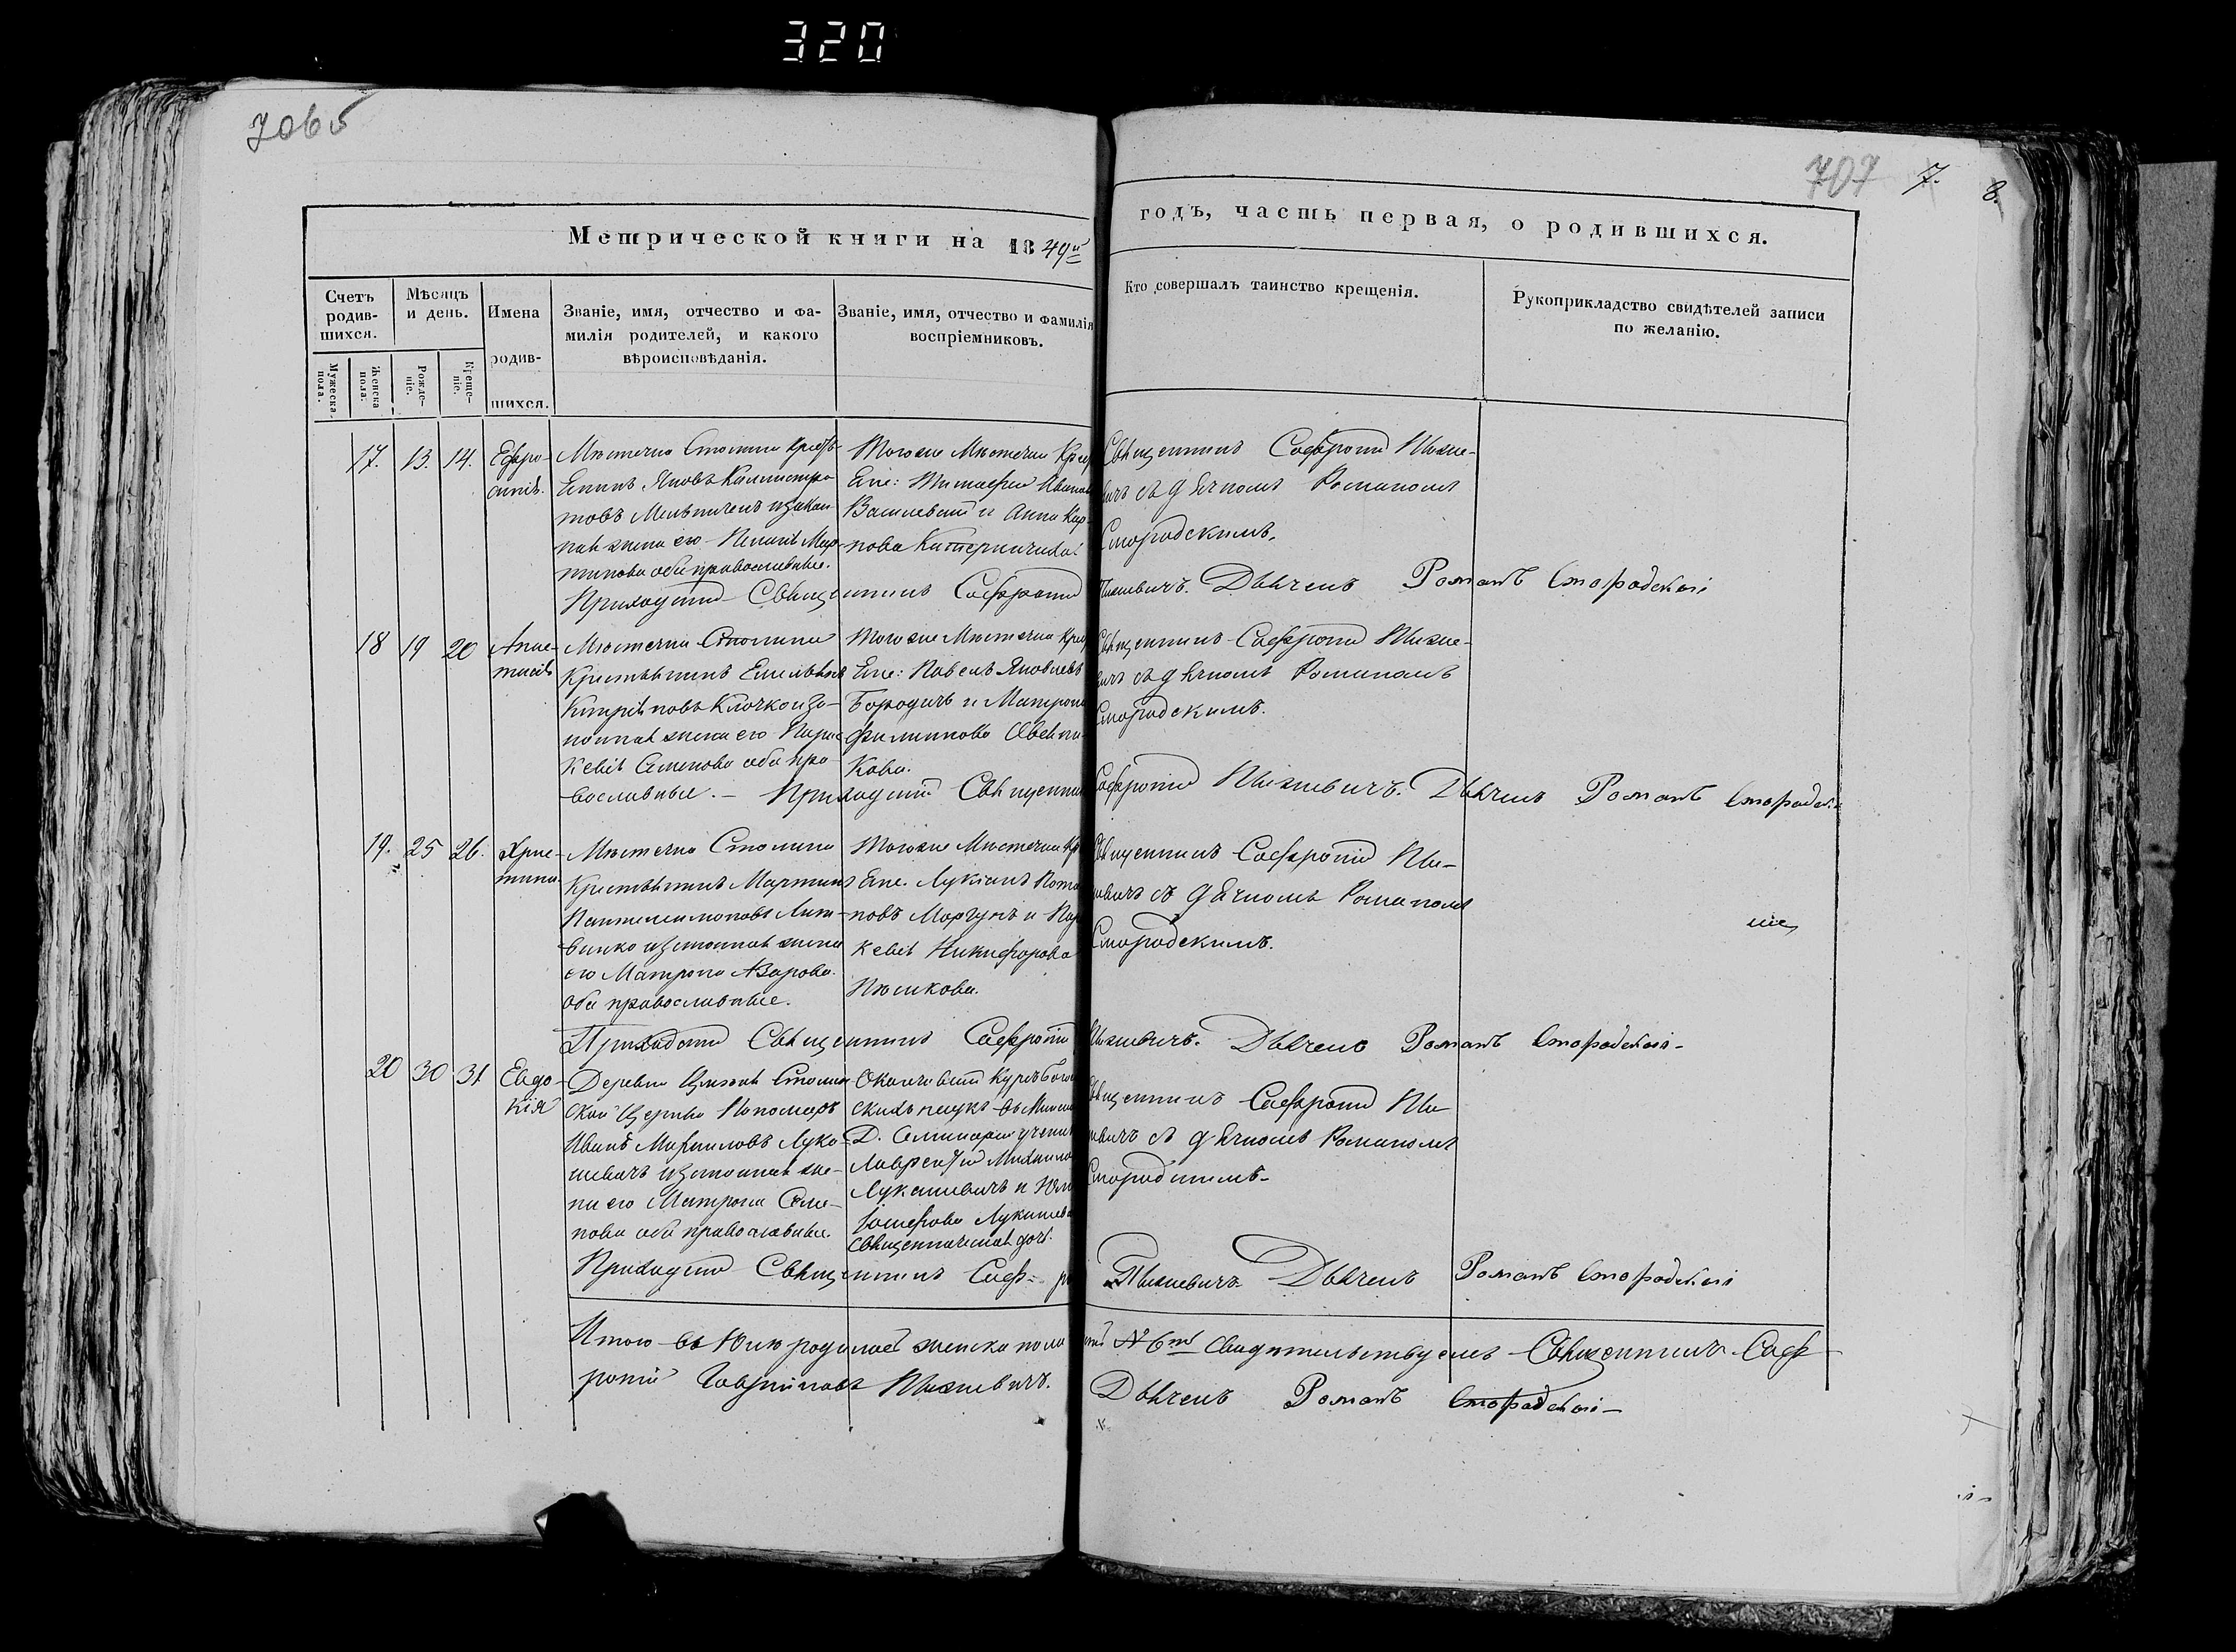 320
706 б
707 7. 8.
Метрической книги на 1849й
годъ, часть первая, о родившихся.
Счетъ родив-
шихся.
Мѣсяцъ
и день.
Имена
родив-
шихся.
Званіе, имя, отчество и фа-
милія родителей, и какого
вѣроисповѣданія.
Званіе, имя, отчество и фамилія
воспріемниковъ.
Кто совершалъ таинство крещенія.
Рукоприкладство свидѣтелей записи
по желанію.
Мужеска
пола.
Женска
пола.
Рожде-
ніе.
Креще-
ніе.
17. 13. 14. Евфро-
синія.
Мѣстечка Столина Крест-
янинъ Яковъ Каллистра-
товъ Мельничекъ и закон-
ная жена его Пелагія Мар-
тинова оба православные.
Тогоже Мѣстечка Крес
Яне: Тимофей Иванов
Василевскій и Анна Кар-
пова
Священникъ Софроній Пыжие-
вичъ съ дьячкомъ Романомъ
Смородскимъ.
Приходскій Священникъ Софроній Пыжиевичъ. Дьячекъ Романъ Смородскій
18 19 20 Анас-
тасія
Мѣстечка Столина
Крестьянинъ Емельянъ
Кипріяновъ Клочко и за-
конная жена его Парас-
кевія Семенова оба пра-
вославные. –
Тогоже Мѣстечка Крес
Яне: Павелъ Яковлевъ
Бородичъ и Матрона
Филиппова
кова.
Священникъ Софроній Пыжие-
вичъ съ дьячкомъ Романомъ
Смородскимъ.
Приходскій Священникъ Софроній Пыжиевичъ. Дьячекъ Романъ Смородскій
19. 25 26. Хрис-
тина.
Мѣстечка Столина
Крестьянинъ Мартинъ
Пантелеимоновъ Лит-
винко и законная жена
его Матрона Азарова
оба православные.
Тогоже Мѣстечка Кр
Яне. Лукіанъ Пота
повъ Моргунъ и Пар
кевія Никифорова
Пѣшкова.
Священникъ Софроній Пы-
жиевичъ съ дьячкомъ Романомъ
Смородскимъ.
Приходскій Священникъ Софроній Пыжиевичъ. Дьячекъ Романъ Смородскій –
20 30 31 Евдо-
кія
Деревни Столин-
ской Церкви Пономарь
Иванъ Михаиловъ Лука-
шевичъ и законная же-
на его Матрона Семе-
нова оба православные.
Окончившій Курсъ Богос
скихъ наукъ въ Минско
Д. Семинаріи ученик
Лаврентій Михаило
Лукашевичъ и Юл
Іосифова Лукашев
Священническая дочь.
Священникъ Софроній Пы
жиевичъ съ дьячкомъ Романомъ
Смородскимъ –
Приходскій Священникъ Соф= ро Пыжиевичъ Дьячекъ Романъ Смородскій
Итого въ родилось женска пола № 6ть Свидѣтельствуемъ Священникъ Соф-
роній Гавриловъ Пыжиевичъ. Дьячекъ Романъ Смородскій –